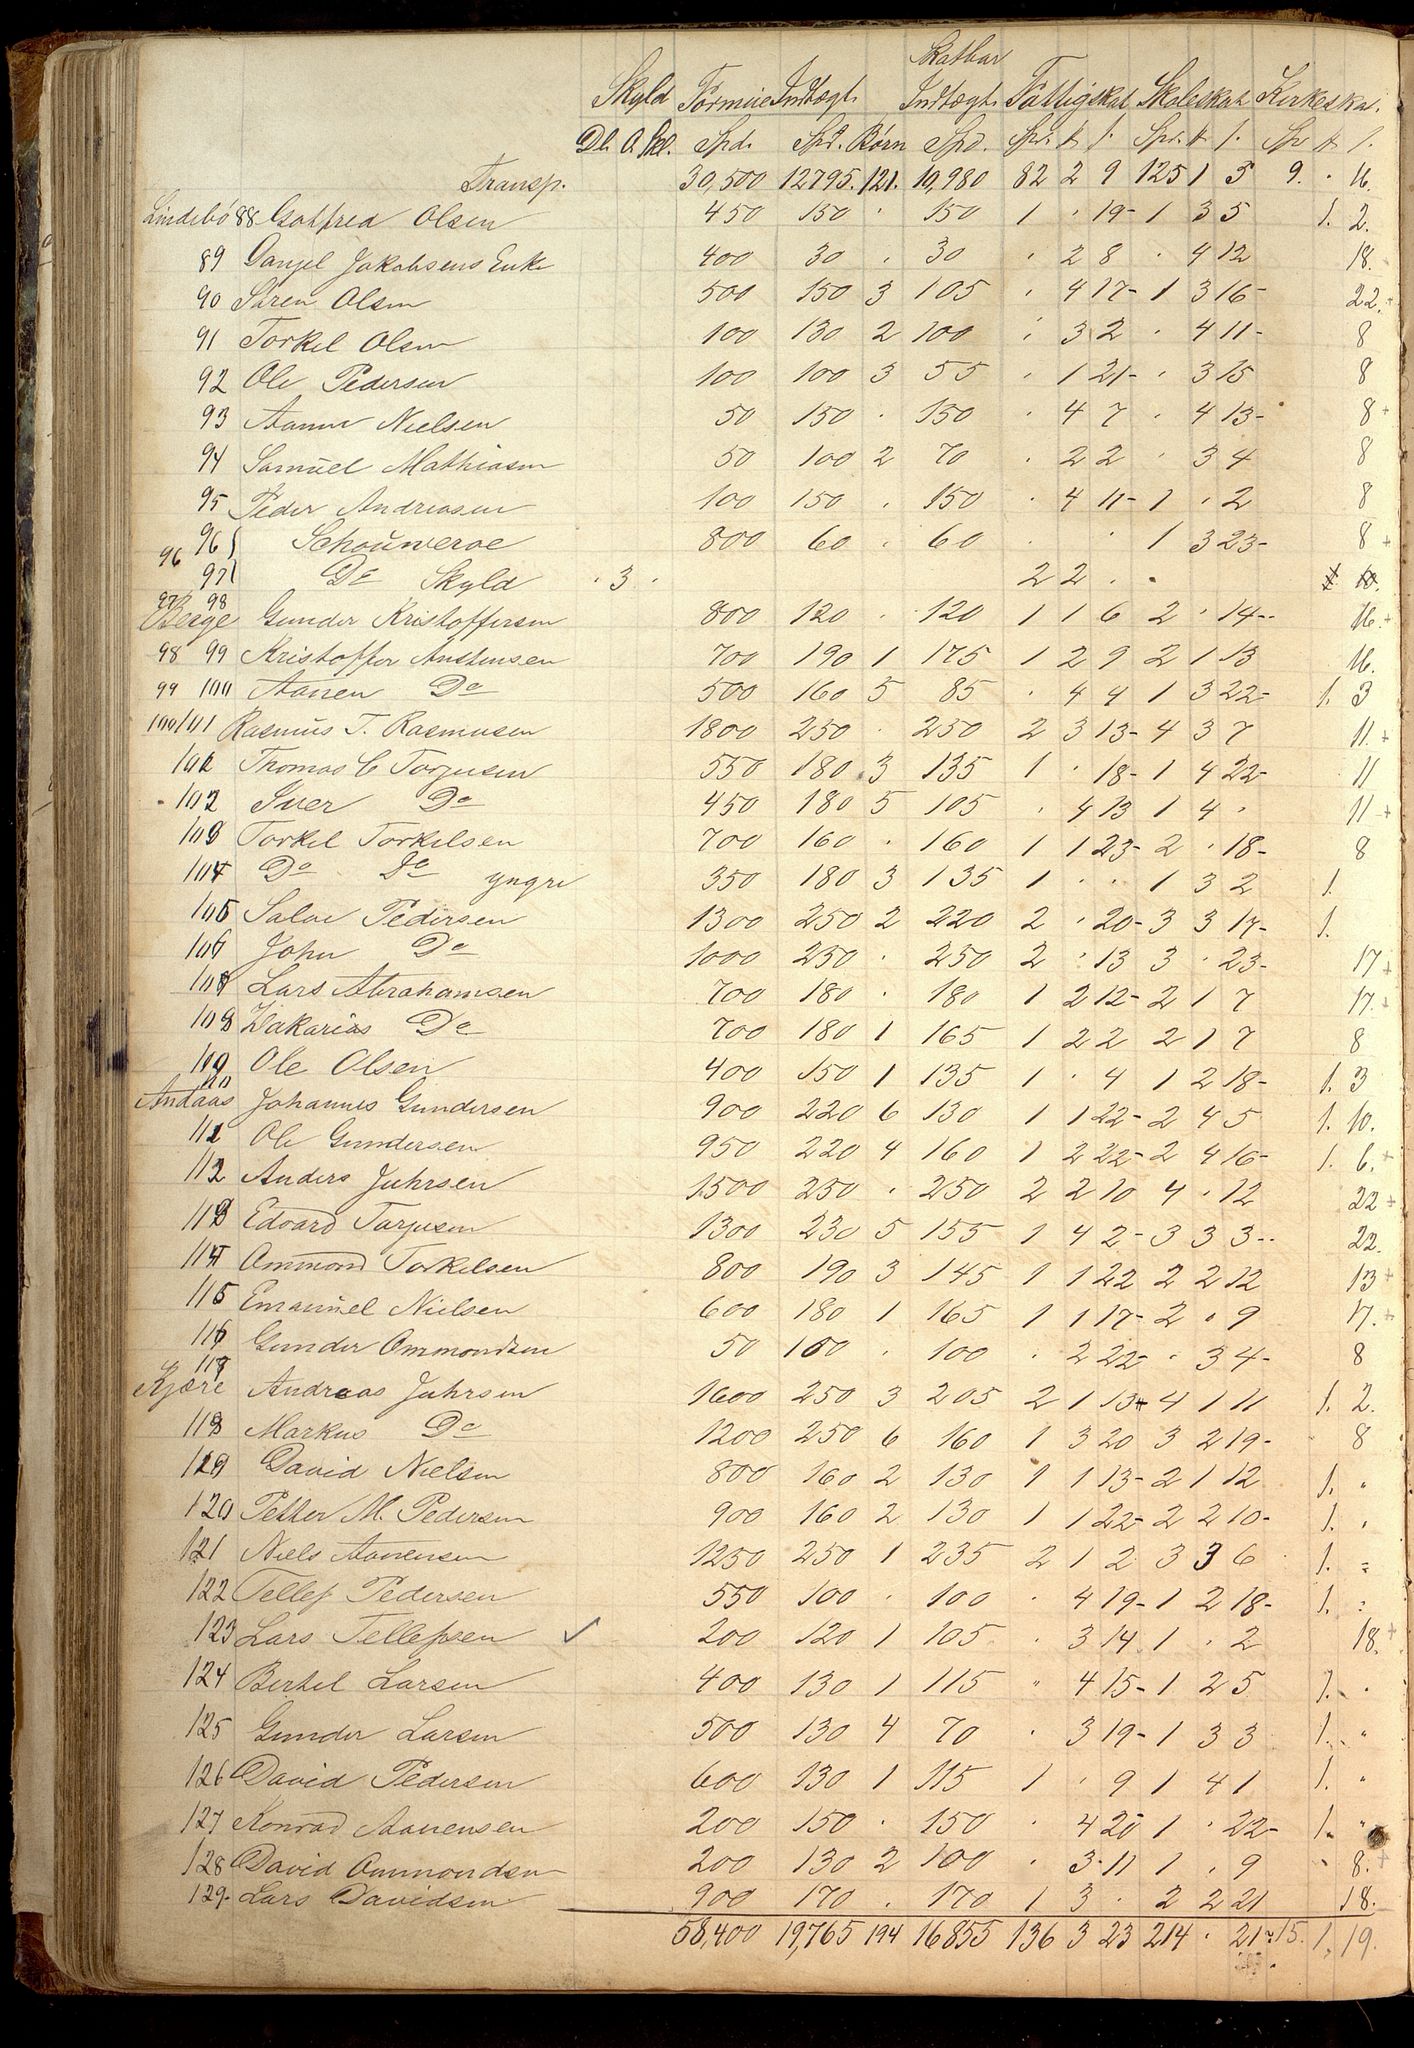 Skatbar
Skyld Formue Indtægt. Indtægt. Fattigskat Skoleskat Kirkeska.
Dl. O. Skl. Spd. Spd. Børn Spd. Spd. ₶ ſ. Spd. ₶ ſ. Sp ₶ ſ.
Transp. 30,500 12795. 121. 10,980 82 2 9 125 1 3 9. · 16.
Lindebö 88 Gotfred Olsen 450 150 · 150 1 · 19- 1 3 5 1. 2.
89 Danjel Jakobsens Enke 400 30 · 30 · 2 8 · 4 12 18.
90 Sören Olsen 500 150 3 105 · 4 17- 1 3 16- 22.
91 Torkel Olsen 100 130 2 100 · 3 2 · 4 11- 8
92 Ole Pedersen 100 100 3 55 · 1 21- · 3 15 8
93 Aanon Nielsen 50 150 · 150 · 4 7 · 4 13- 8 +
94 Samuel Mathiasen 50 100 2 70 · 2 2 · 3 4 8
95 Peder Andreasen 100 150 · 150 · 4 11- 1 · 2 8
96 96 Schouweroe 800 60 · 60 · · 1 3 23- 8 +
97 Do Skyld · 3 · 2 2 · · 10.
97 98
Berge Gunder Kristoffersen 800 120 · 120 1 1 6 2 · 14- 16. +
98 99 Kristoffer Anstensen 700 190 1 175 1 2 9 2 1 13 16.
99 100 Aanen Do 500 160 5 85 · 4 4 1 3 22- 1. 3
100 101 Rasmus T. Rasmusen 1800 250 · 250 2 3 13- 4 3 7 11. +
102 Thomas C Torjusen 550 180 3 135 1 · 18- 1 4 22- 11
102 Iver Do 450 180 5 105 · 4 13 1 4 · 11 +
103 Torkel Torkelsen 700 160 · 160 1 1 23- 2 · 18- 8
104 Do Do yngre 350 180 3 135 1 · · 1 3 2 1.
105 Salve Pedersen 1300 250 2 220 2 · 20- 3 3 17- 1.
106 John Do 1000 250 · 250 2 · 13 3 · 23- 17 +
108 Lars Abrahamsen 700 180 · 180 1 2 12- 2 1 7 17. +
108 Zakarias Do 700 180 1 165 1 2 2 2 1 7 8
109 Ole Olsen 400 150 1 135 1 · 4 1 2 18- 1. 3
110
Andaas Johannes Gundersen 900 220 6 130 1 1 22- 2 4 5 1. 10.
111 Ole Gundersen 950 220 4 160 1 2 22- 2 4 16- 1. 6. +
112 Anders Juhrsen 1500 250 · 250 2 2 10 4 · 12 22 +
113 Edvard Torjusen 1300 230 5 155 1 4 2- 3 3 3- 22.
114 Ommond Torkelsen 800 190 3 145 1 1 22 2 2 12 13 +
115 Emanuel Nielsen 600 180 1 165 1 1 17- 2 · 9 17. +
116 Gunder Ommondsen 50 100 · 100 · 2 22- · 3 4- 8
117
Kjære Andreas Juhrsen 1600 250 3 205 2 1 13- 4 1 11 1. 2.
118 Markus Do 1200 250 6 160 1 3 20 3 2 19- 8
119 David Nielsen 800 160 2 130 1 1 13- 2 1 12 1. ·
120 Petter M. Pedersen 900 160 2 130 1 1 22- 2 2 10- 1. ·
121 Niels Aanensen 1250 250 1 235 2 1 2 3 3 6 1. =
122 Tellef Pedersen 550 100 · 100 · 4 19- 1 2 18- 1. :
123 Lars Tellefsen ✓ 200 120 1 105 · 3 14 1 · 2 18. +
124 Bertel Larsen 400 130 1 115 " 4 15- 1 2 5 1. ·
125 Gunder Larsen 500 130 4 70 · 3 19- 1 3 3 1. "
126 David Pedersen 600 130 1 115 1 · 9 1 4 1 1. "
127 Konrad Aanensen 200 150 · 150 · 4 20 1 · 22- 1. "
128 David Ommondsen 200 130 2 100 · 3 · 11 1 · 9 · 8. +
129. Lars Davidsen 900 170 · 170 1 3 · 2 2 21 18.
58,400 19,765 194 16855 136 3 23 214 · 21- 15. 1. 19.